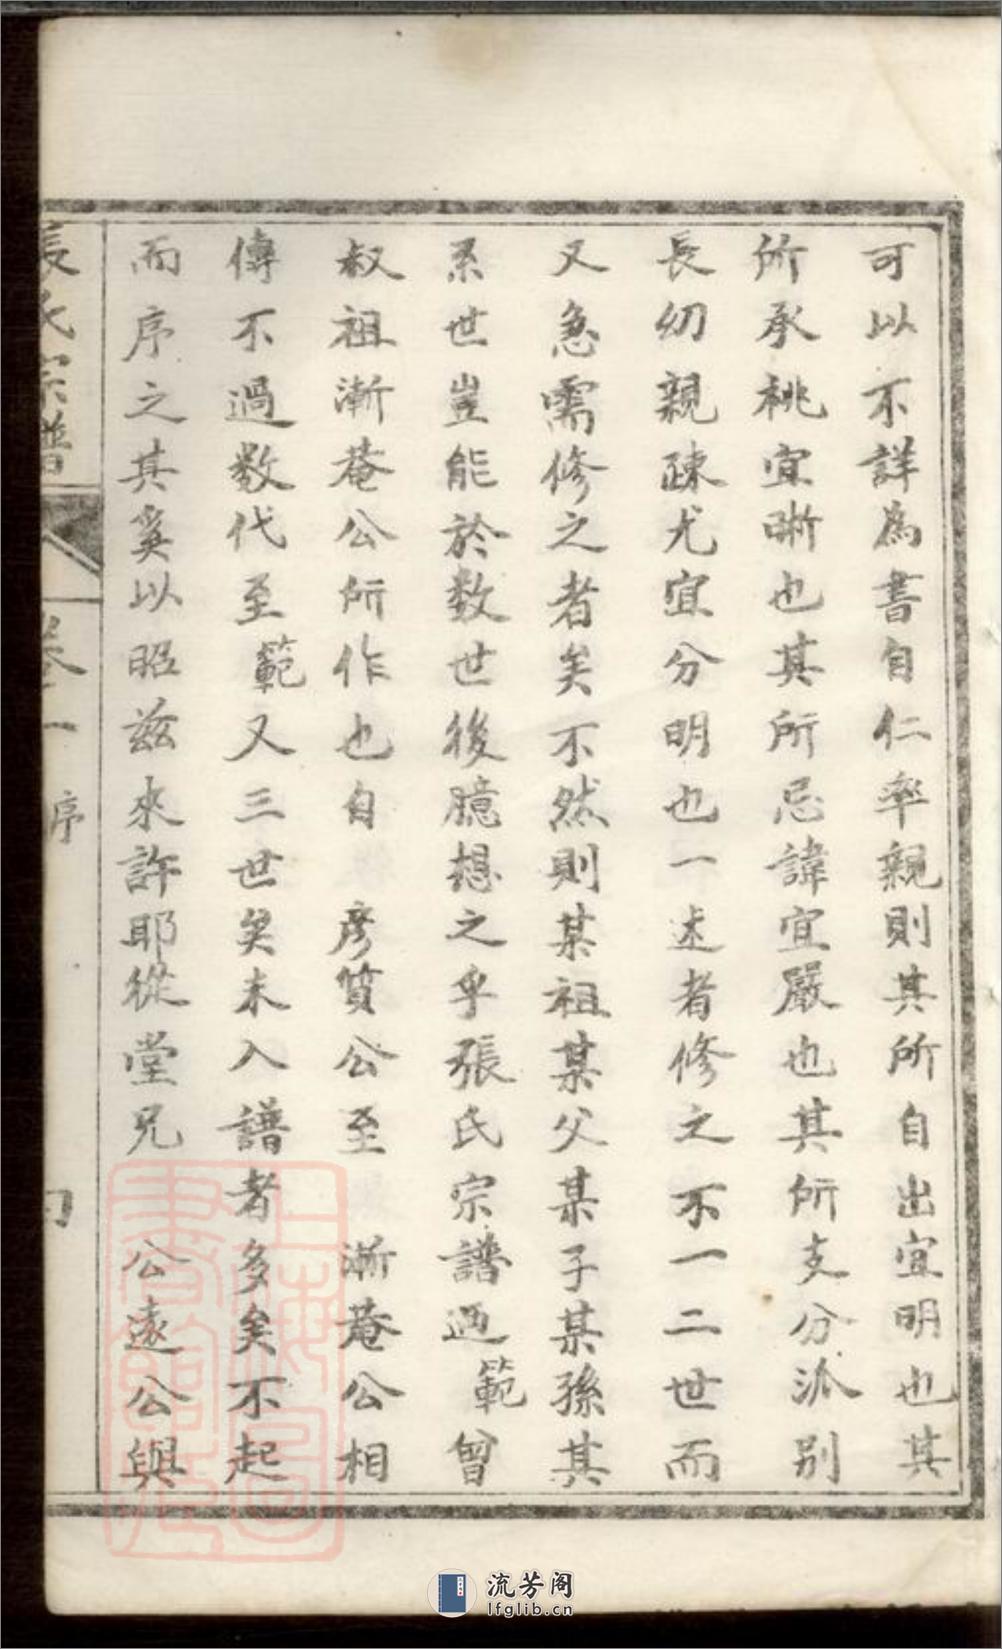 可以不詳為書自仁率親則其所自出宜明也其
所承祧宜晰也其所忌諱宜嚴也其所支分派别
長幼親疎尤宜分明也一述者修之不一二世而
又急需修之者矣不然則某祖某父某子某孫其
系世豈能於数世後臆想之乎張氏宗譜迺範曾
叔祖漸菴公所作也自彦質公至漸菴公相
傳不過数代至範又三世矣未入譜者多矣不起
而序之其奚以昭兹來許耶從堂兄公遠公與
張氏宗譜 卷一 序
上海圖書館藏
流芳阁
lfglib.cn